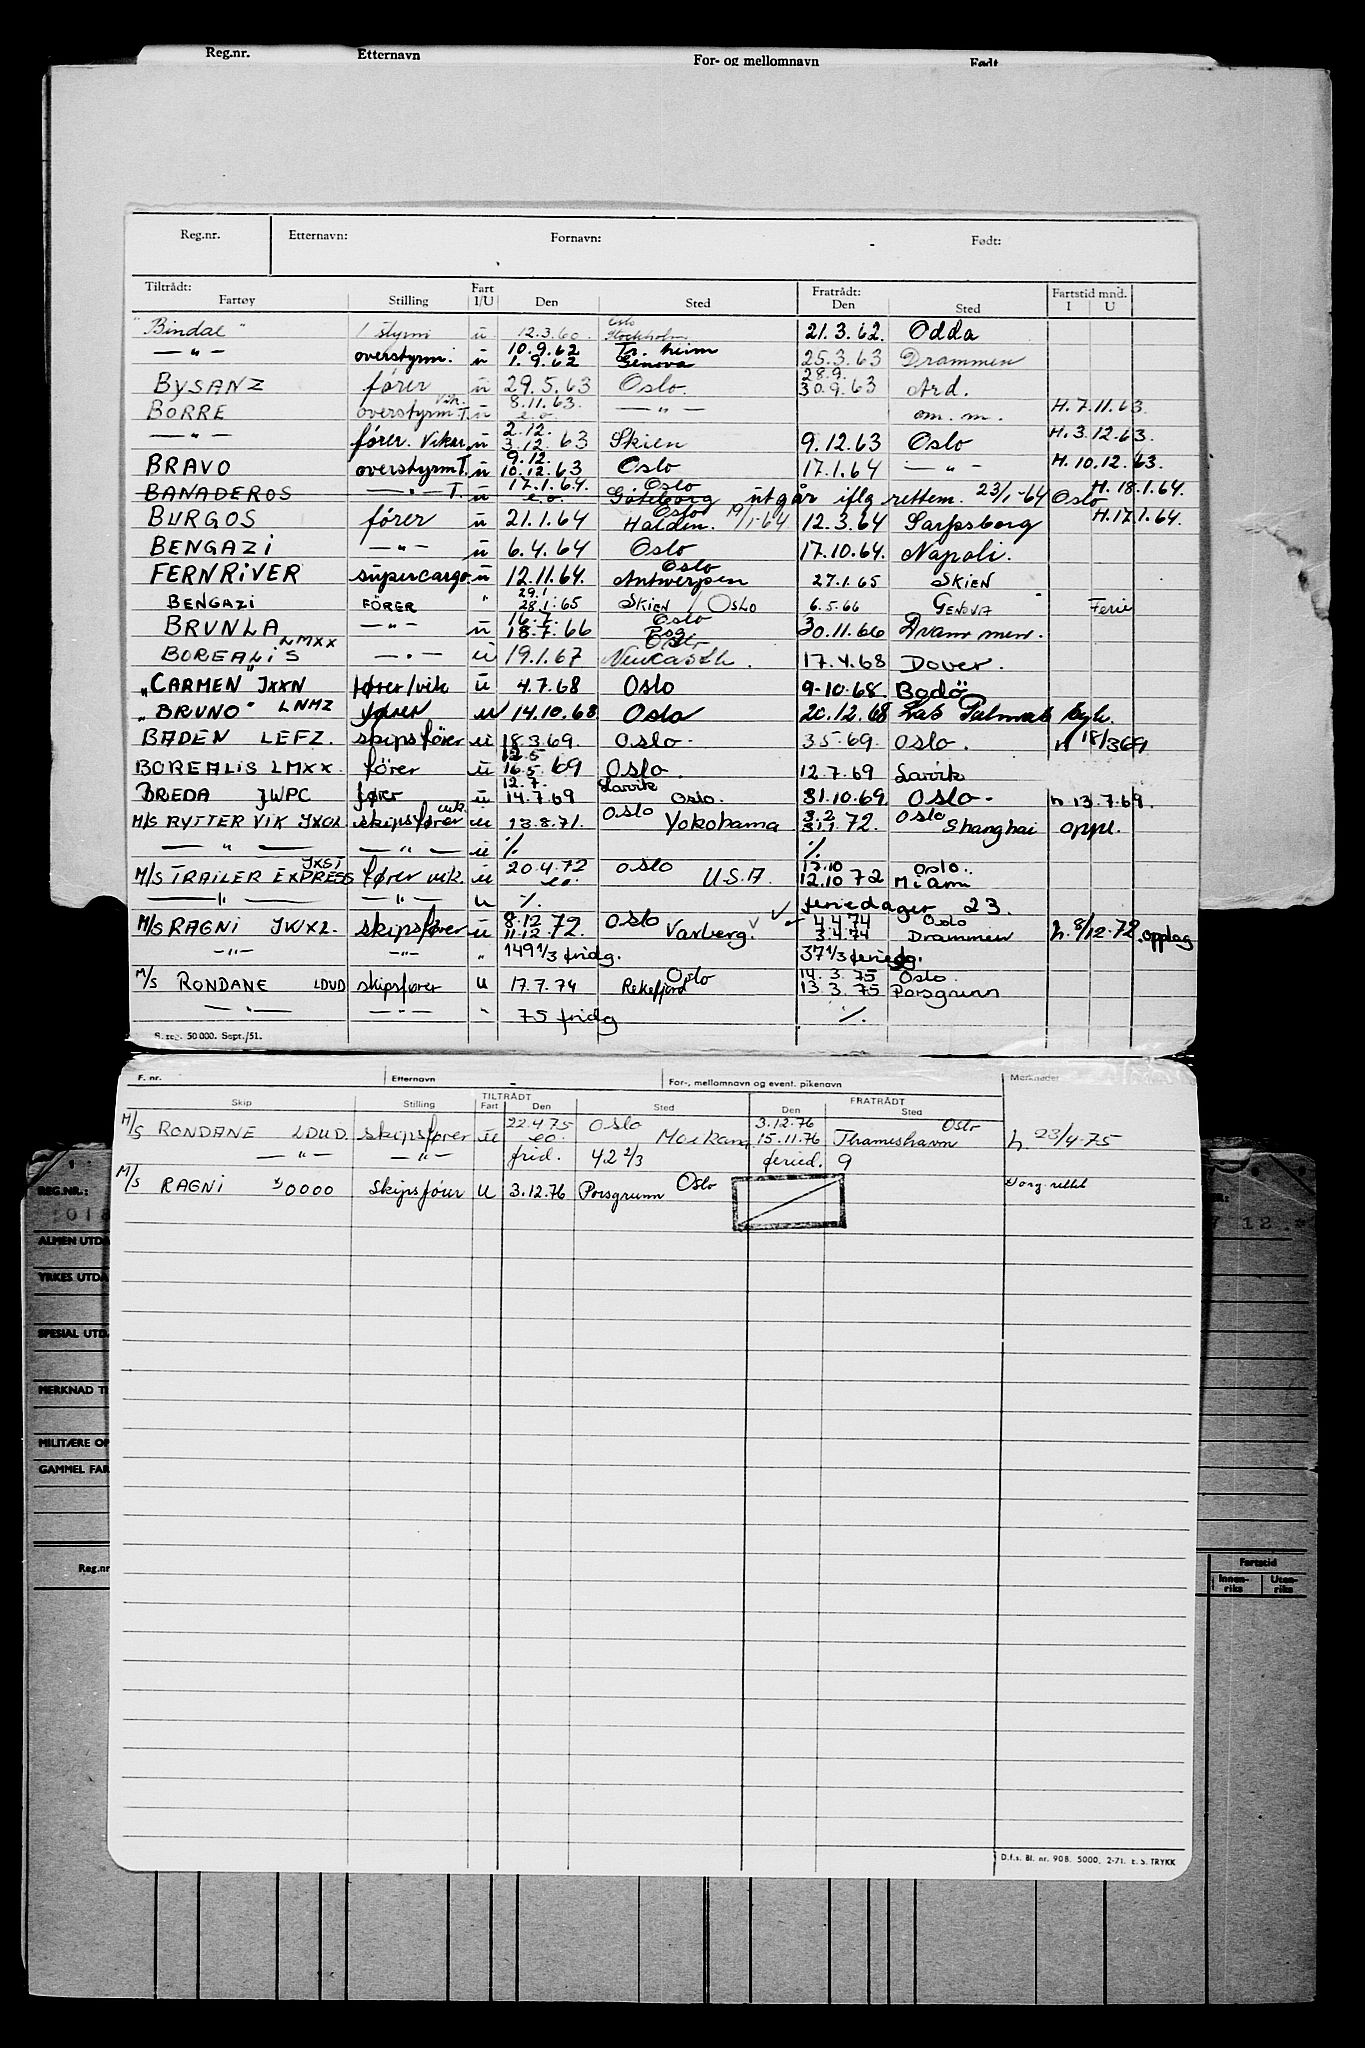 Reg.nr. Etternavn For- og mellomnavn Født
Reg.nr. Etternavn: Fornavn: Født:
Tiltrådt: Fartøy Stilling Fart I/U Den Sted Fratrådt: Den Sted Fartstid mnd. I U
"Bindal" 1 styrm u 12.3.60 Oslo Stockholm 21.3.62 Odda
— " — overstyrm. u 10.9.62 1.9.62 Tr. heim Genova 25.3.63 Drammen
BYSANZ fører u 29.5.63 Oslo. 28.9. 30.9.63 Ard.
BORRE overstyrm T. Vik. u 8.11.63. e.o. — " — om. m. H.7.11.63.
— " — fører. Vikar. u 2.12. 3.12.63 Skien 9.12.63 Oslo H.3.12.63.
BRAVO overstyrm T. u 9.12. 10.12.63 Oslo 17.1.64 — " — H.10.12.63.
BANADEROS — " — T. u 17.1.64. e.o. Oslo Göteborg utgår iflg rettem. 23/1-64 Oslo H.18.1.64.
BURGOS fører u 21.1.64 Oslo Halden. 19/1-64 12.3.64 Sarpsborg H.17.1.64.
BENGAZI — " — u 6.4.64 Oslo 17.10.64. Napoli.
FERNRIVER supercargo u 12.11.64. Oslo Antwerpen 27.1.65 SKIEN
BENGAZI FÖRER " 29.1 28.1.65 SKIEN / OSLO 6.5.66 GENOVA Ferie
BRUNLA — " — u 16.7. 18.7.66 Oslo Psg 30.11.66 Drammen.
BOREALIS LMXX — " — u 19.1.67 Oslo Newcastle. 17.4.68 Dover.
"CARMEN" JXXN fører/vik u 4.7.68 Oslo 9-10.68. Bodö
"BRUNO" LNMZ fører u 14.10.68 Oslo 20.12.68 Las Palmas syk.
BADEN LEFZ. skipsförer u 18.3.69. Oslo. 3.5.69. Oslo. h 18/3 69
BOREALIS LMXX. förer u 12.5 16.5.69 Oslo. 12.7.69 Larvik
BREDA JWPC fører u 12.7. 14.7.69 Larvik Oslo. 31.10.69. Oslo. h 13.7.69.
M/S RYTTER VIK JXOR skipsfører vik. u 13.8.71. Oslo Yokohama 3.2 31.1.72. Oslo Shanghai oppl.
— " — — " — u % %
M/S TRAILER EXPRESS JXST fører vik. u 20.4.72 eo. Oslo U.S.A. 13.10 12.10 72 Oslo. Miami
— " — — " — u % feriedager 23.
M/S RAGNI JWXL. skipsfører u 8.12 11.12.72. Oslo Varberg. 4.4.74 3.4.74 Oslo Drammen h. 8/12-72. opplag
— " — — " — " 149 1/3 fridg. 37 1/3 feriedg.
M/S RONDANE LDUD skipsfører u 17.7.74 Oslo Rekefjord 14.3.75 13.3.75 Oslo Porsgrunn
— " — — " — " 75 fridg %
S. reg. 50000. Sept./51.
F. nr. Etternavn For-, mellomnavn og event. pikenavn Merknader
Skip Stilling TILTRÅDT Fart Den Sted FRATRÅDT Den Sted
M/S RONDANE LDUD. skipsfører u 22.4.75 eo. Oslo 3.12.76 15.11.76 Oslo Thamshavn h. 23/4-75
— " — — " — frid. 42 2/3 feried. 9
M/S RAGNI x) 0000 Skipsfører U 3.12.76 Porsgrunn Oslo
REG.NR.:
ALMEN UTDA
YRKES UTDA
SPESIAL UTD
MERKNAD TI
MILITÆRE OP
GAMMEL FAR
Reg.nr
712
Fartstid
Innen-riks Uten-riks
D.f.s. Bl. nr. 90B. 5000. 2-71. E. S. TRYKK